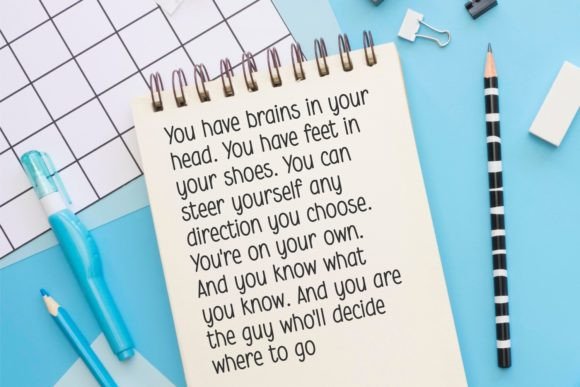 You have brains in your
head. You have feet in
your shoes. You can
steer yourself any
direction you choose.
You're on your own.
And you know what
you know. And you are
the guy who'll decide
where to go